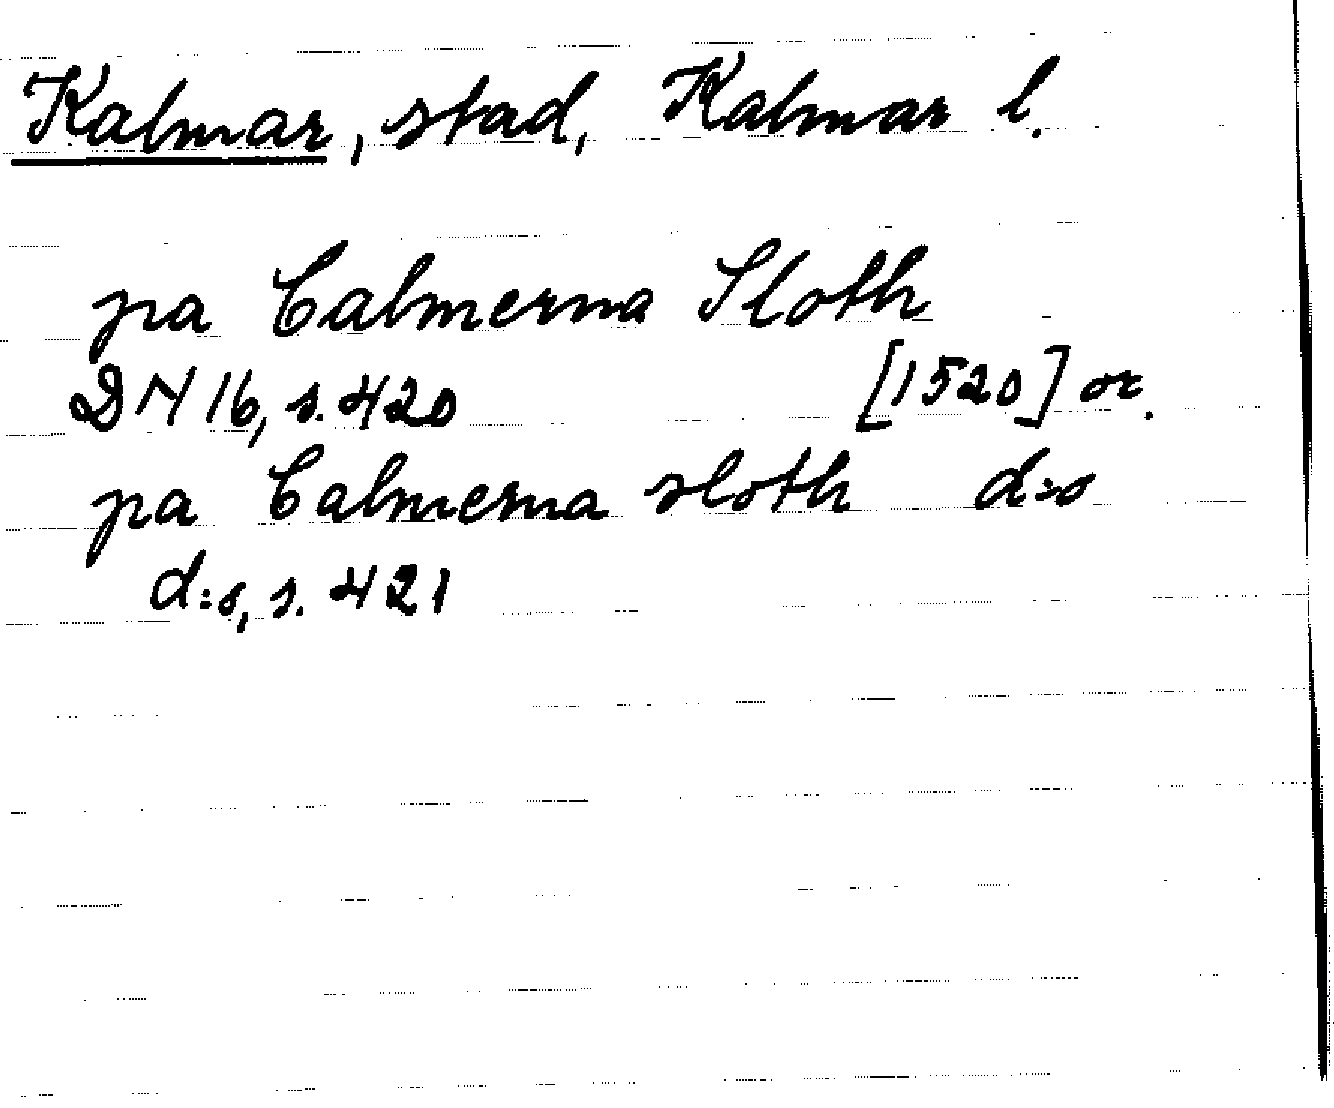 Kalmar, stad, Kalmar l.
pa Calmerna Sloth
DN 16, s. 420 [1520] or.
pa Calmerna sloth d:o
d:o, s. 421